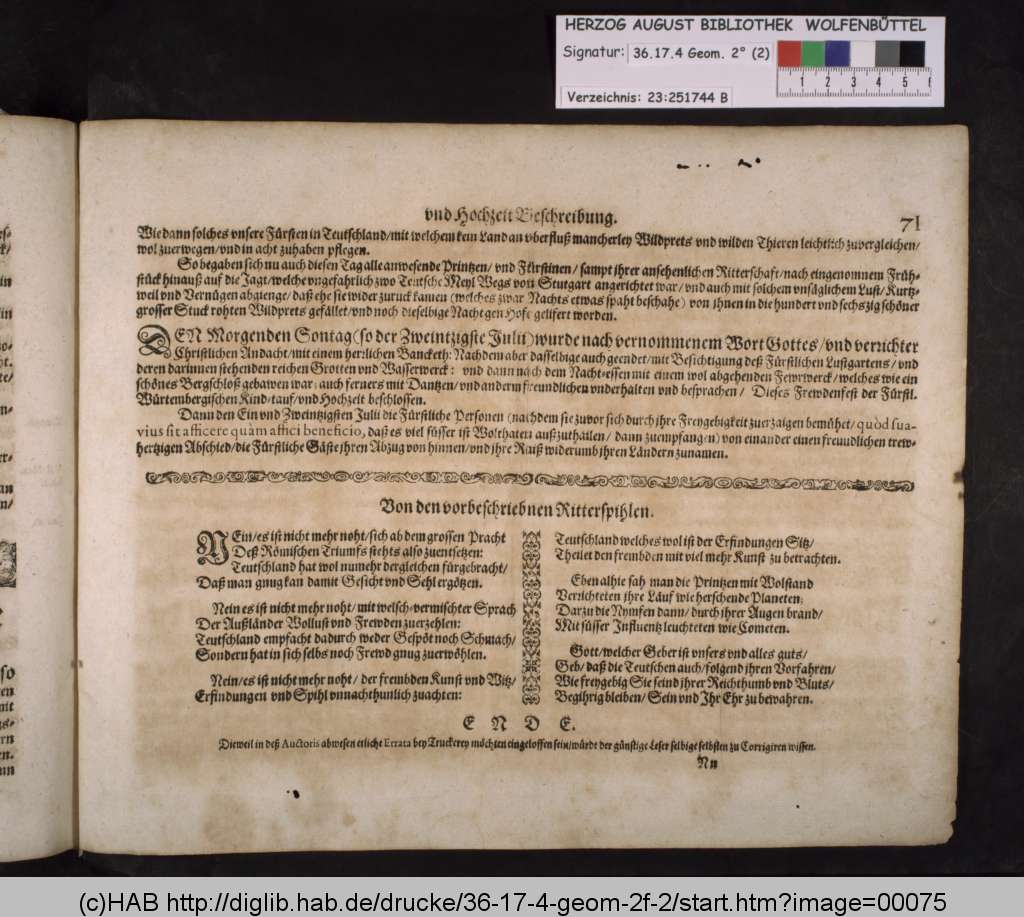 HERZOG AUGUST BIBLIOTHEK WOLFENBÜTTEL
Signatur: 36.17.4 Geom. 2° (2)
1 2 3 4 5 6
Verzeichnis: 23:251744 B
vnd Hochzeit Beschreibung. 71
Wie dann solches vnsere Fürsten in Teutschland/mit welchem kein Land an vberfluß mancherley Wildprets vnd wilden Thieren leichtlich zuvergleichen/
wol zuerwegen/vnd in acht zuhaben pflegen.
So begaben sich nu auch diesen Tag alle anwesende Printzen/ vnd Fürstinen/ sampt ihrer ansehenlichen Ritterschaft/nach eingenomnem Früh-
stück hinauß auf die Jagt/welche vngefahrlich zwo Teutsche Meyl Wegs von Stutgart angerichtet war/vnd auch mit solchem vnsäglichem Lust/ Kurtz-
weil vnd Vernügen abgienge/daß ehe sie wider zuruck kamen (welches zwar Nachts etwas spaht beschahe) von ihnen in die hundert vnd sechszig schöner
grosser Stuck rohten Wildprets gefället/vnd noch dieselbige Nacht gen Hofe gelifert worden.
DEN Morgenden Sontag (so der Zweintzigste Julii) wurde nach vernommenem Wort Gottes/vnd verichter
Christlichen Andacht/mit einem herzlichen Bancketh: Nachdem aber dasselbige auch geendet/mit Besichtigung deß Fürstlichen Lustgartens/ vnd
deren darinnen stehenden reichen Grotten vnd Wasserwerck: vnd dann nach dem Nacht-essen mit einem wol abgehenden Fewrwerck/welches wie ein
schönes Bergschloß gebawen war: auch ferners mit Dantzen/vnd anderm freundlichen vnderhalten vnd besprachen/ Dieses Frewdenfest der Fürstl.
Würtembergischen Kind/tauf/vnd Hochzeit beschlossen.
Dann den Ein vnd Zweintzigsten Julii die Fürstliche Personen (nachdem sie zuvor sich durch ihre Freygebigkeit zuerzaigen bemühet/ quòd sua-
vius sit afficere quàm affici beneficio, daß es viel süsser ist Wolthaten außzuthailen/ dann zuempfangen) von einander einen freuudlichen trew-
hertzigen Abschied/die Fürstliche Gäste ihren Abzug von hinnen/vnd ihre Raiß widerumb ihren Ländern zunamen.
Von den vorbeschriebnen Ritterspihlen.
NEin/es ist nicht mehr noht/sich ab dem grossen Pracht
Deß Römischen Triumfs stehts also zuentsetzen:
Teutschland hat wol numehr dergleichen fürgebracht/
Daß man gnug kan damit Gesicht vnd Sehl ergötzen.
Nein es ist nicht mehr noht/ mit welsch-vermischter Sprach
Der Außländer Wollust vnd Frewden zuerzehlen:
Teutschland empfacht dadurch weder Gespöt noch Schmach/
Sondern hat in sich selbs noch Frewd gnug zuerwöhlen.
Nein/es ist nicht mehr noht/ der frembden Kunst vnd Witz/
Erfindungen vnd Spihl vnnachthunlich zuachten:
Teutschland welches wol ist der Erfindungen Sitz/
Theilet den frembden mit viel mehr Kunst zu betrachten.
Eben alhie sah man die Printzen mit Wolstand
Verrichteten ihre Läuf wie herschende Planeten:
Dar zu die Nymfen dann/ durch ihrer Augen brand/
Mit süsser Influentz leuchteten wie Cometen.
Gott/welcher Geber ist vnsers vnd alles guts/
Geb/ daß die Teutschen auch/folgend ihren Vorfahren/
Wie freygebig Sie seind ihrer Reichthumb vnd Bluts/
Begihrig bleiben/ Sein vnd Ihr Ehr zu bewahren.
E N D E.
Dieweil in deß Auctoris abwesen etliche Errata bey Truckerey möchten eingeloffen sein/würdt der günstige Leser selbige selbsten zu Corrigiren wissen.
Nn
(c)HAB http://diglib.hab.de/drucke/36-17-4-geom-2f-2/start.htm?image=00075